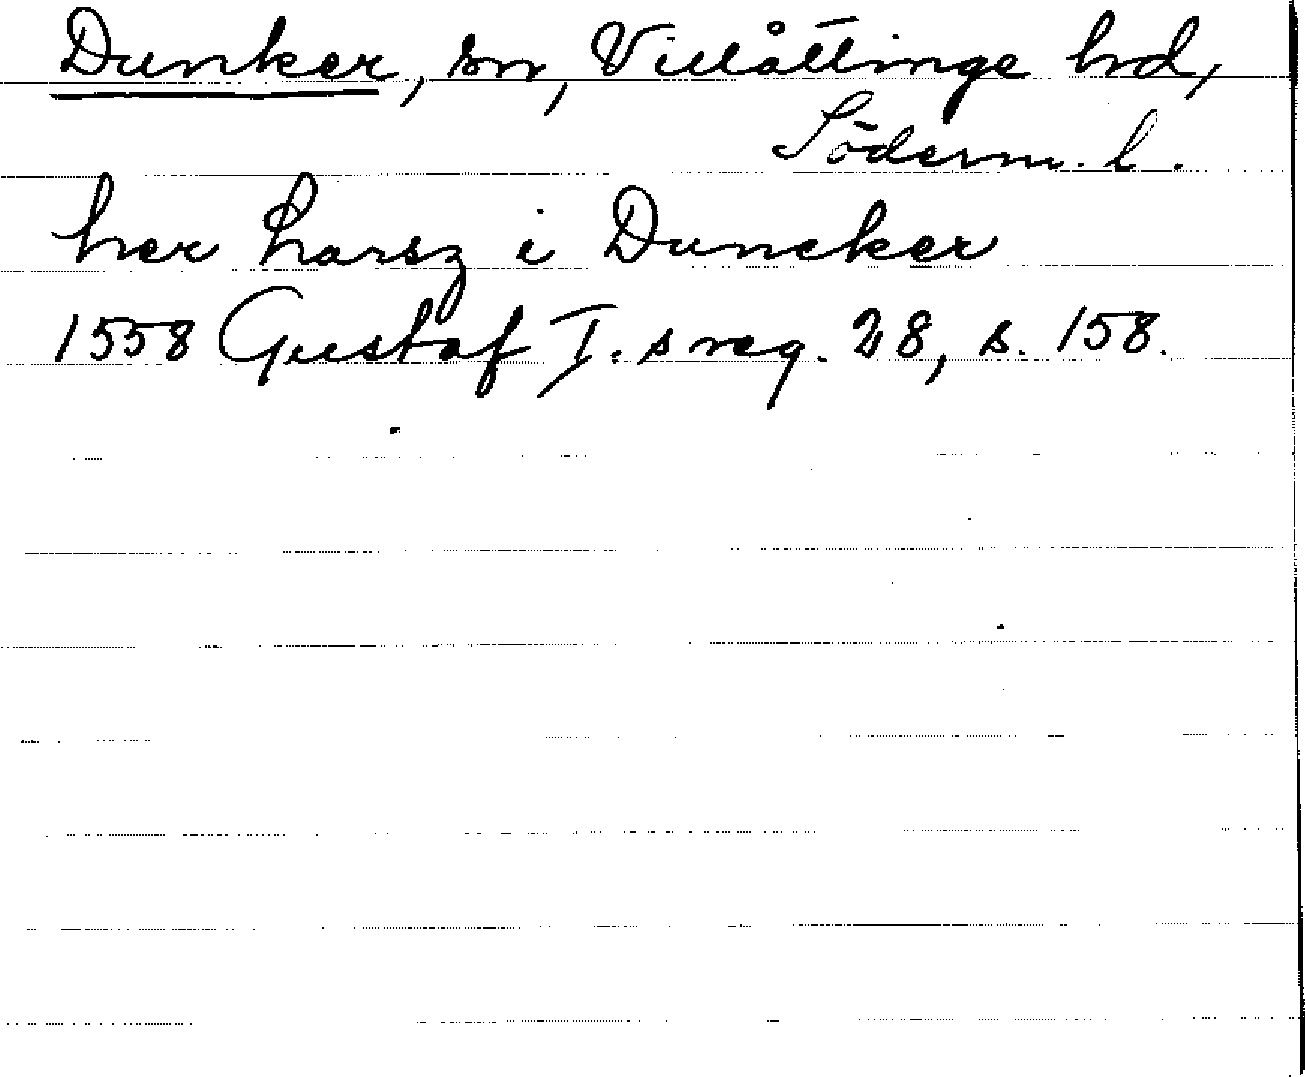 Dunker, sn, Villåttinge hd,
Söderm. l.
her Larsz i Duncker
1558 Gustaf I.s reg. 28, s. 158.